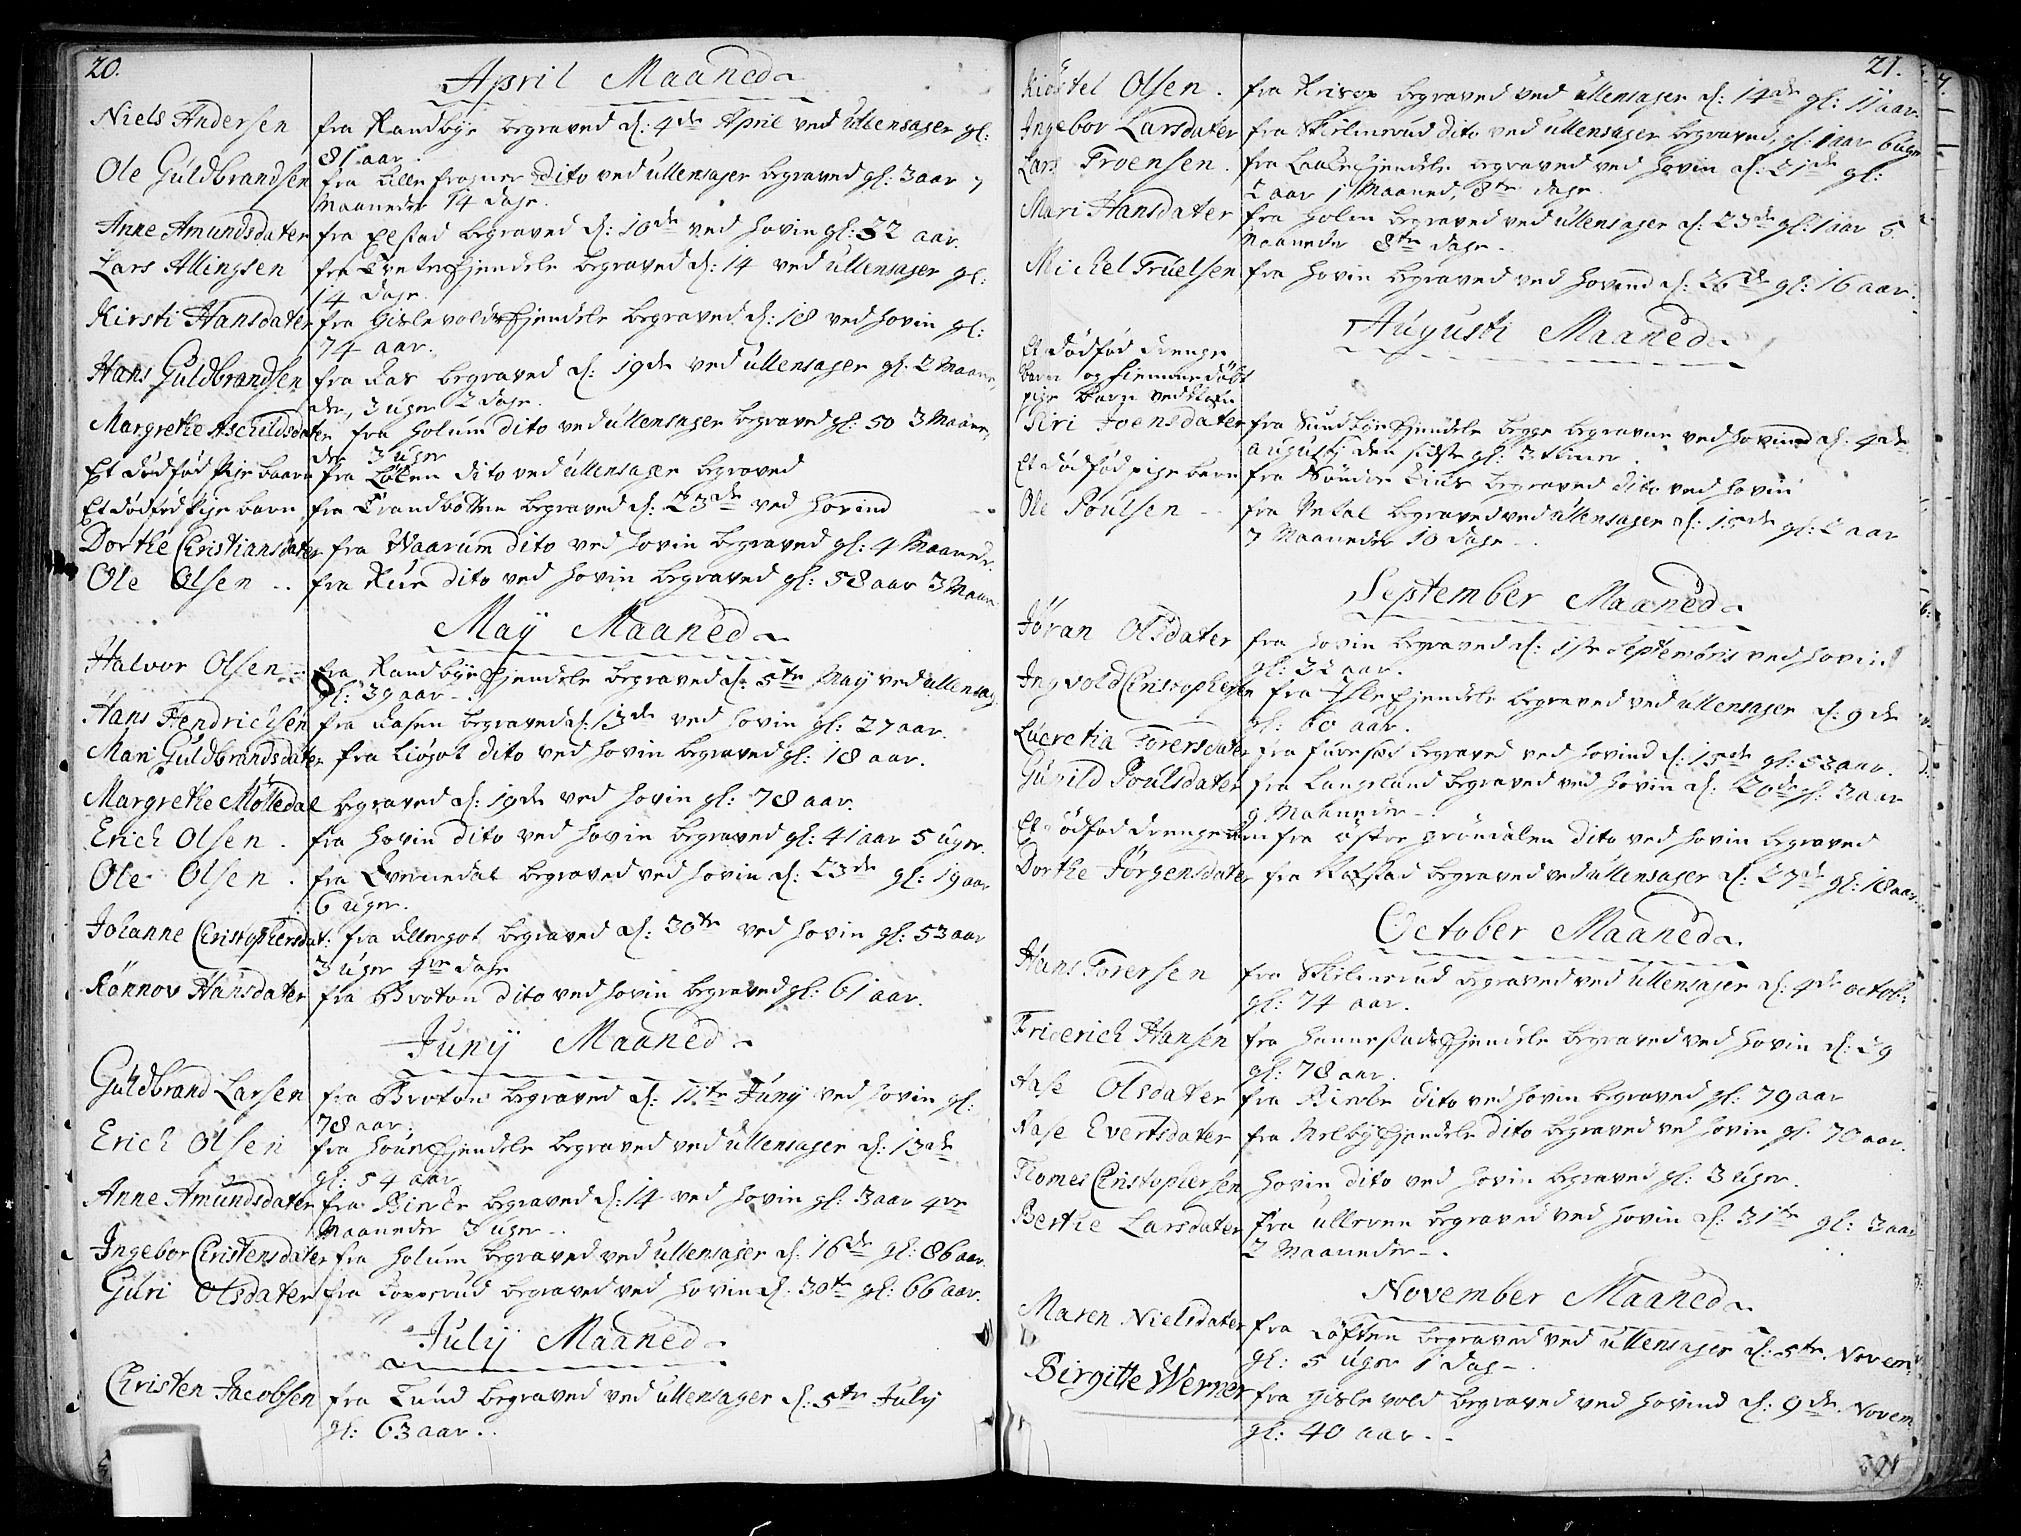 20.
April Maaned
Niels Andersen fra Randbye begraved d: 4de April ved Ullensager gl:
81 aar.
Ole Guldbrandsen fra Lille frogner dito ved Ullensager begraved gl: 3 aar 7
Maaneder 14 dage.
Anne Amundsdater fra Elstad begraved d: 10de ved Hovin gl: 52 aar.
Lars Allingsen fra Tveter Ejendele begraved d: 14 ved Ullensager gl:
14 dage.
Kirsti Hansdater fra Gislevolds Ejendele begraved d: 18 ved Hovin gl:
74 aar.
Hans Guldbrandsen fra Aas begraved d: 19de ved Ullensager gl: 2 Maane,
der, 3 uger 2 dage.
Margrethe Aschildsdater fra Holum dito ved Ullensager begraved gl: 50 3 Maane,
der 3 uger
Et dødfød Pige baarn fra Løken dito ved Ullensager begraved
Et dødfød Pige barn fra Trandbotten begraved d: 23de ved Hovind
Dorthe Christiansdater fra Waarum dito ved Hovin begraved gl: 4 Maaneder.
Ole Olsen .. fra Rue dito ved Hovin begraved gl: 58 aar 3 Maan
May Maaned
Halvor Olsen .. fra Randbye Ejendele begraved d: 5te May ved Ullensag
gl: 39 aar -.
Hans Hendrichsen fra Aasen begraved d: 13de ved Hovin gl: 27 aar.
Mari Guldbrandsdater fra Liøgot dito ved Hovin begraved gl: 18 aar.
Margrethe Mølledal begraved d: 19de ved Hovin gl: 78 aar.
Erich Olsen . fra Hovin dito ved Hovin begraved gl: 41 aar 5 uger.
Ole Olsen . fra Qvennedal begraved ved Hovin d: 23de gl: 19 aar
6 uger.
Johanne Christophersdat: fra Ellergot begraved d: 30te ved Hovin gl: 53 aar
3 uger 4re dage
Rønnov Hansdater fra Broton dito ved Hovin begraved gl: 61 aar.
Juny Maaned
Guldbrand Larsen fra Broton begraved d: 11te Juny ved Hovin gl:
78 aar.
Erich Olsen fra Houg Ejendele begraved ved Ullensager d: 13de
gl: 54 aar
Anne Amundsdater fra Bierke begraved d: 14 ved Hovin gl: 3 aar 4re
Maaneder 3 uger -.
Ingebor Christensdater fra Holum begraved ved Ullensager d: 16de gl: 86 aar.
Guri Olsdater fra Topperud begraved ved Hovin d: 30te gl: 66 aar.
July Maaned
Christen Jacobsen fra Tund begraved ved Ullensager d: 5te July
gl: 63 aar..
21.
Kiøstel Olsen . fra Krisop begraved ved Ullensager d: 14de gl: 11 aar.
Ingebor Larsdater fra Skielmerud dito ved Ullensager begraved, gl: 1 aar 6 uger
Lars Troensen . fra Bakke Ejendele begraved ved Hovin d: 21de gl:
2 aar 1 Maaned, 8te dage.
Mari Hansdater fra Holm begraved ved Ullensager d: 23de gl: 1 aar 5
Maaneder 8te dage -
Michel Truelsen fra Hovin begraved ved Hovind d: 26de gl: 16 aar.
Augusti Maaned
Et dødfød Drenge
barn og hiemmedøbt
pige barn ved Nafn
Siri Joensdater fra Sundbye Ejendele begge begravne ved Hovind d: 4de
Augusty den sidste gl: 3 timer.
Et dødfød pige barn fra Søndre Lius begraved dito ved Hovin
Ole Poulsen - - fra Netal begraved ved Ullensager d: 15de gl: 2 aar
7 Maaneder 10 dage -.
September Maaned
Jøran Olsdater fra Hovin begraved d: 1ste Septembris ved Hovin
gl: 32 aar.
Ingvold Christophersen fra Hsle Ejendele begraved ved Ullensager d: 9de
gl: 60 aar.
Lucretia Torersdater fra Furesæt begraved ved Hovind d: 15de gl: 53 aar.
Gunild Poulsdater fra Langeland begraved ved Hovin d: 20de gl: 3 aar
9 Maaneder -.
Et dødfød drenge barn fra østre grøndalen dito ved Hovin begraved
Dorthe Jørgensdater fra Kogstad begraved ved Ullensager d: 27de gl: 18 aar.
October Maaned
Hans Torersen fra Skielmerud begraved ved Ullensager d: 4de octob:
gl: 74 aar.
Friderich Hansen fra Hennestads Ejendele begraved ved Hovin d: 29
gl: 78 aar.
Aase Olsdater fra Bierke dito ved Hovin begraved gl: 79 aar
Aase Evertsdater fra Melbye Ejendele dito begraved ved Hovin gl. 70 aar.
Thomes Christophersen Hovin dito ved Hovin begraved gl: 3 uger.
Berthe Larsdater fra Ulleren begraved ved Hovin d: 31te gl: 3 aar
2 Maaneder -.
November Maaned
Maren Nielsdater fra Løfsen begraved ved Ullensager d: 5te Novem:
gl: 5 uger 1 dag -.
Birgitte Werner fra Gislevold begraved ved Hovind d: 9de Novem
gl: 40 aar - -